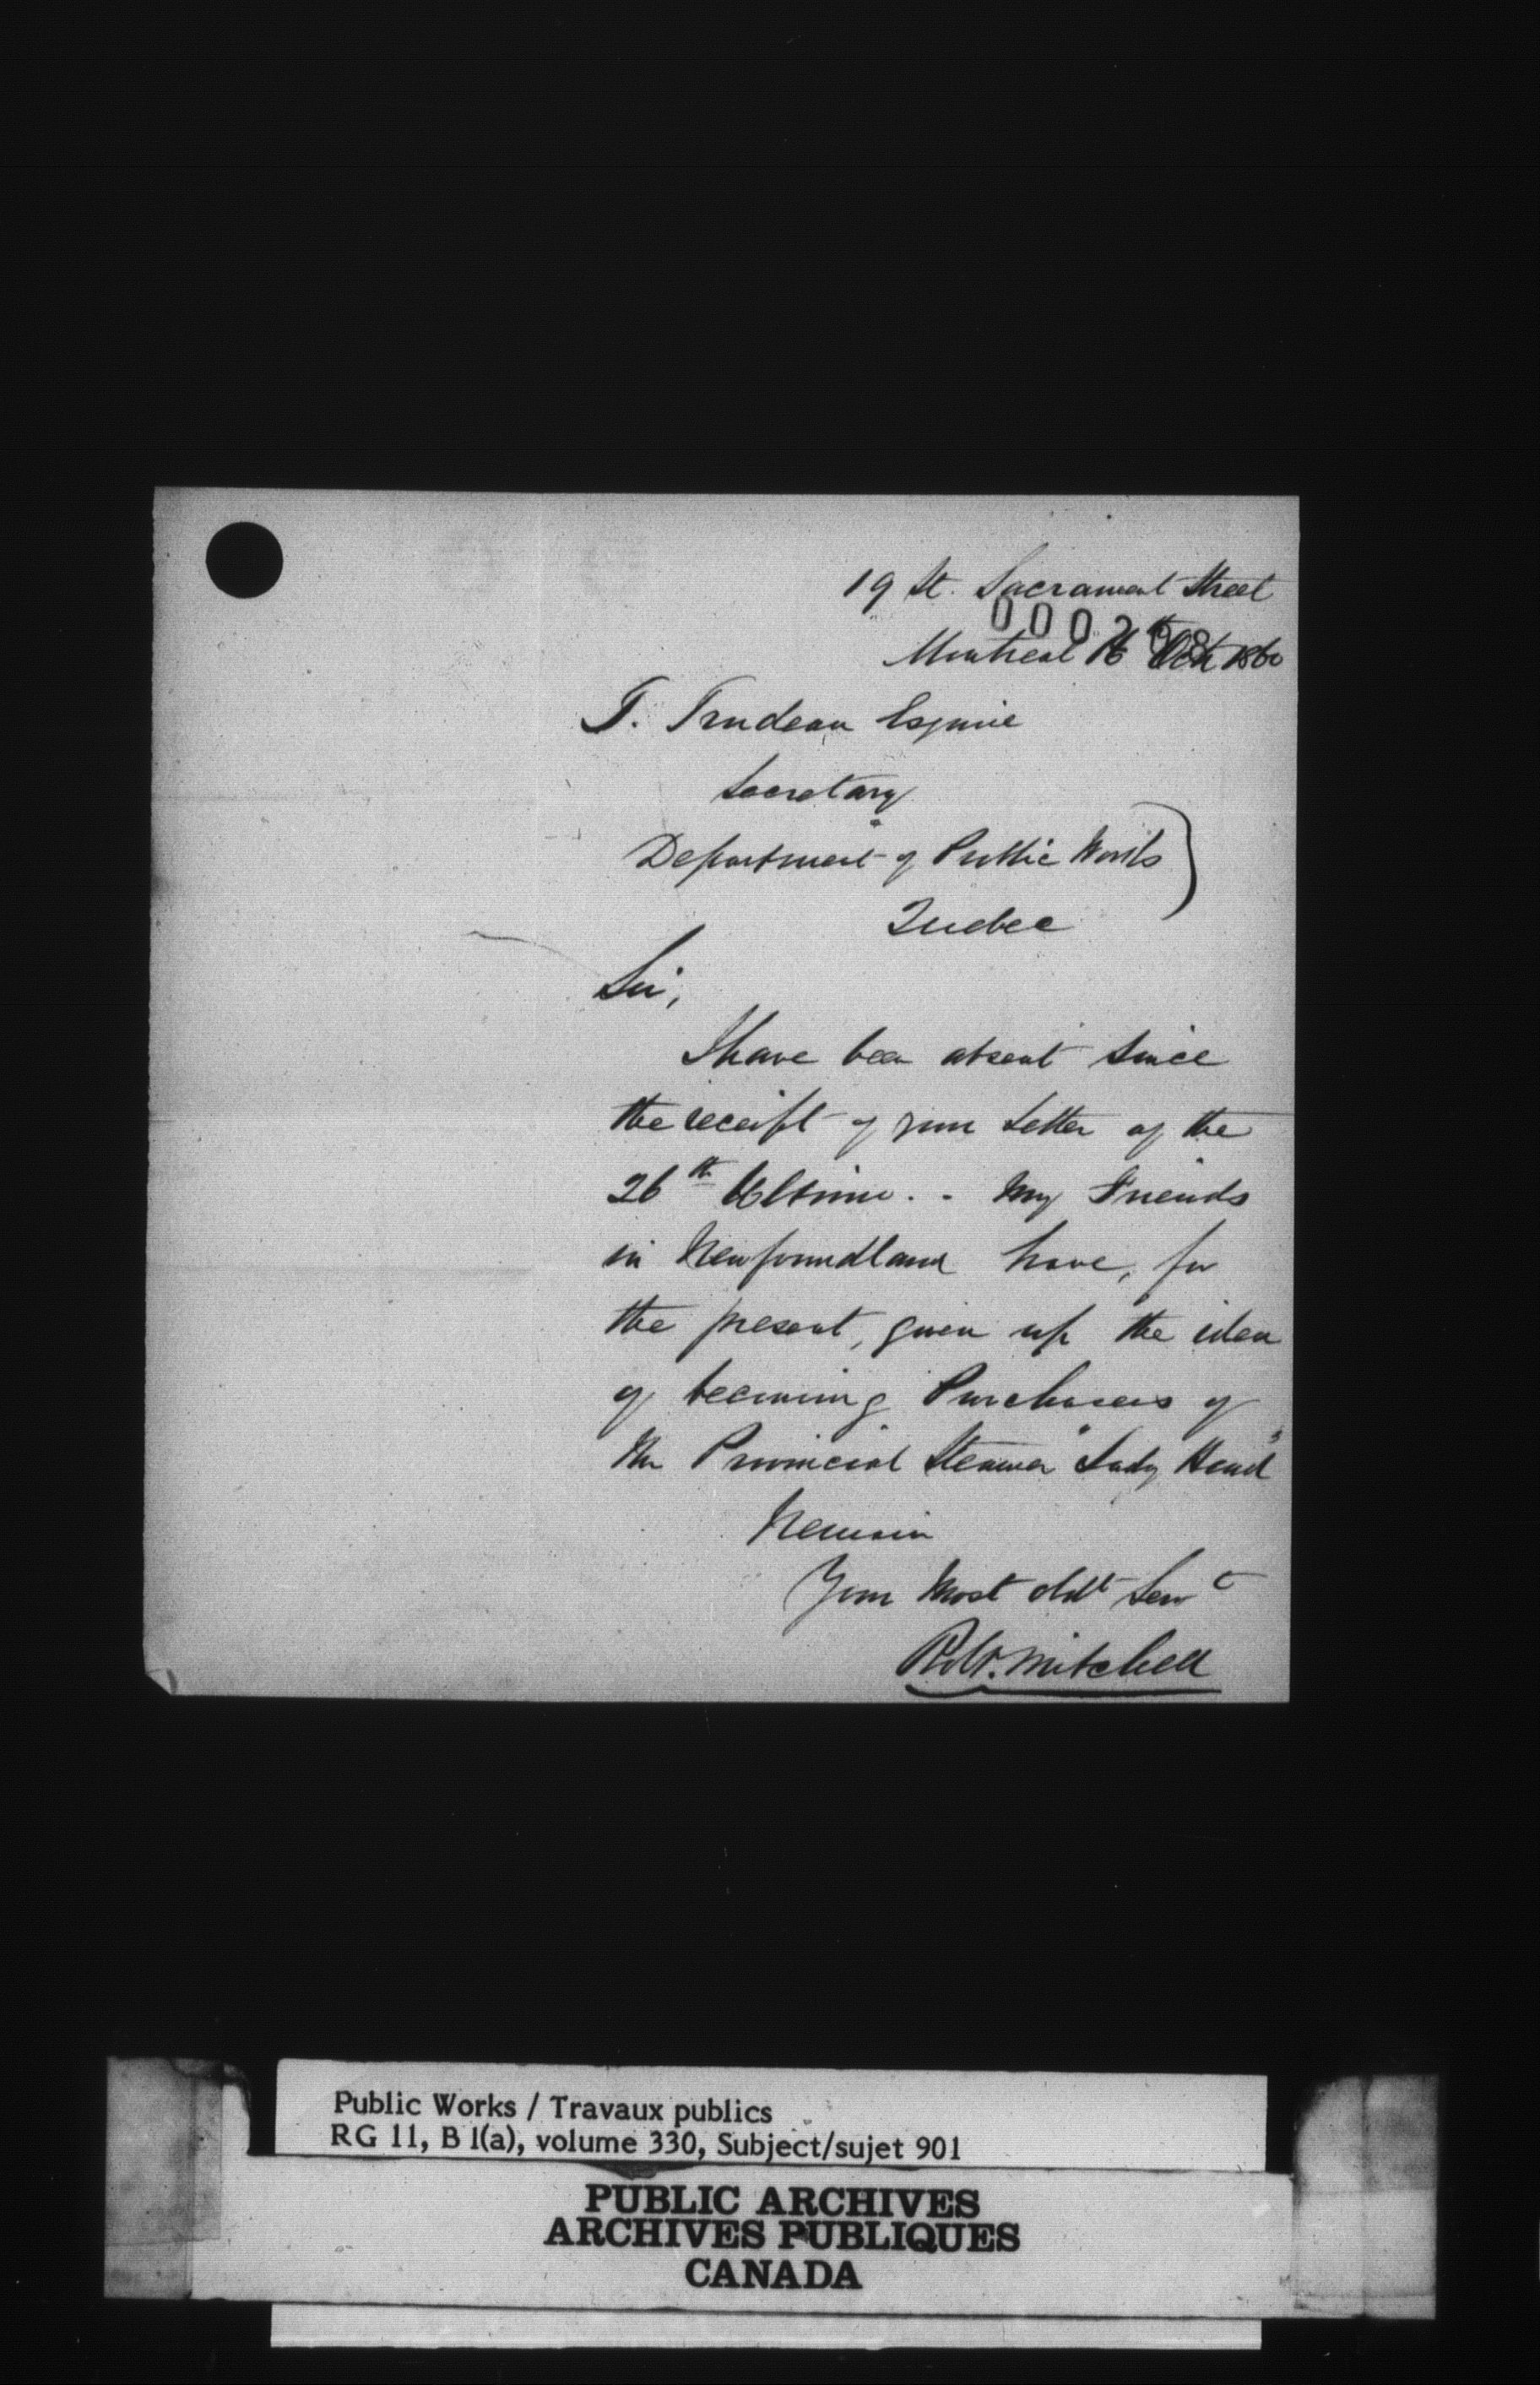 19 St. Sacrament Street
000298
Montreal 16th Oct 1860
T. Trudeau Esquire
Secretary
Department of Public Works
Quebec
Sir,
I have been absent since
the receipt of your Letter of the
26th Ultimo. - My Friends
in Newfoundland have, for
the present, given up the idea
of becoming Purchasers of
the Provincial Steamer "Lady Head"
Remain
Your Most obdt Servt
Robt. Mitchell
Public Works / Travaux publics
RG 11, B 1(a), volume 330, Subject/sujet 901
PUBLIC ARCHIVES
ARCHIVES PUBLIQUES
CANADA